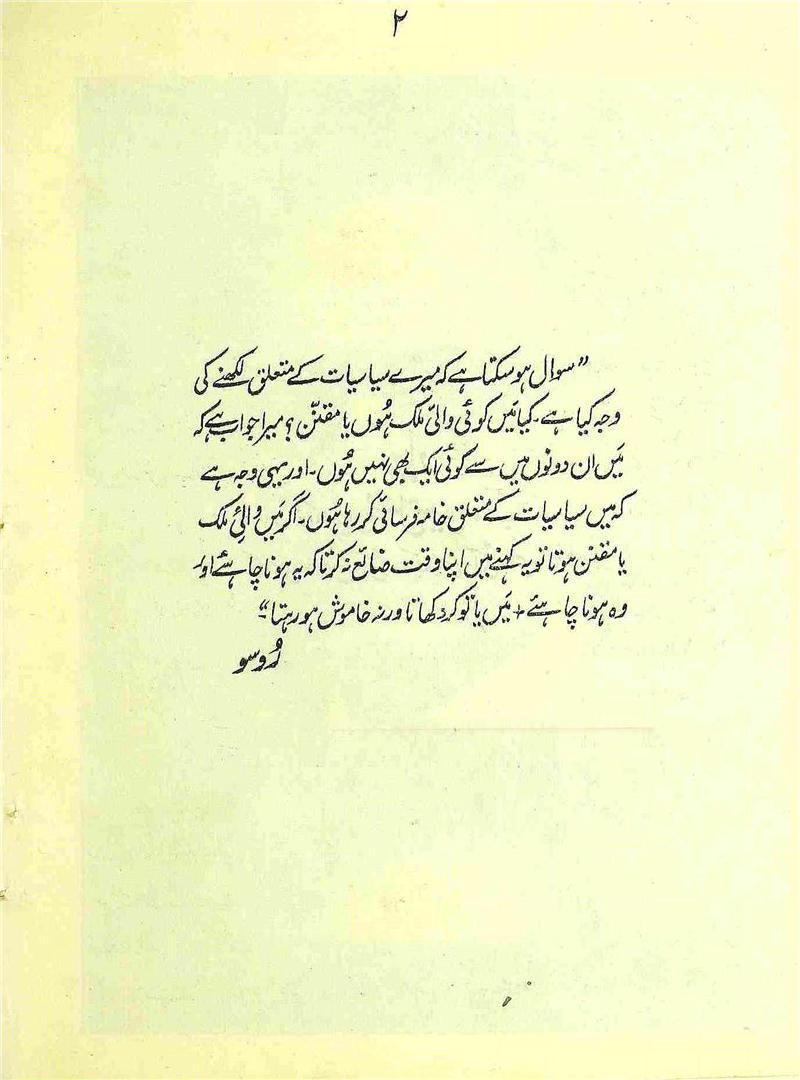 ۲
”سوال ہو سکتا ہے کہ میرے سیاسیات کے متعلق لکھنے کی
وجہ کیا ہے۔ کیا مَیں کوئی والیِ ملک ہُوں یا مقنّن؟ میرا جواب ہے کہ
مَیں ان دونوں میں سے کوئی ایک بھی نہیں ہُوں۔ اور یہی وجہ ہے
کہ میں سیاسیات کے متعلق خامہ فرسائی کر رہا ہُوں۔ اگر مَیں والیِ ملک
یا مقنن ہوتا تو یہ کہنے میں اپنا وقت ضائع نہ کرتا کہ یہ ہونا چاہئے اور
وہ ہونا چاہئے + مَیں یا تو کر دکھاتا ورنہ خاموش ہو رہتا“۔
رُوسو